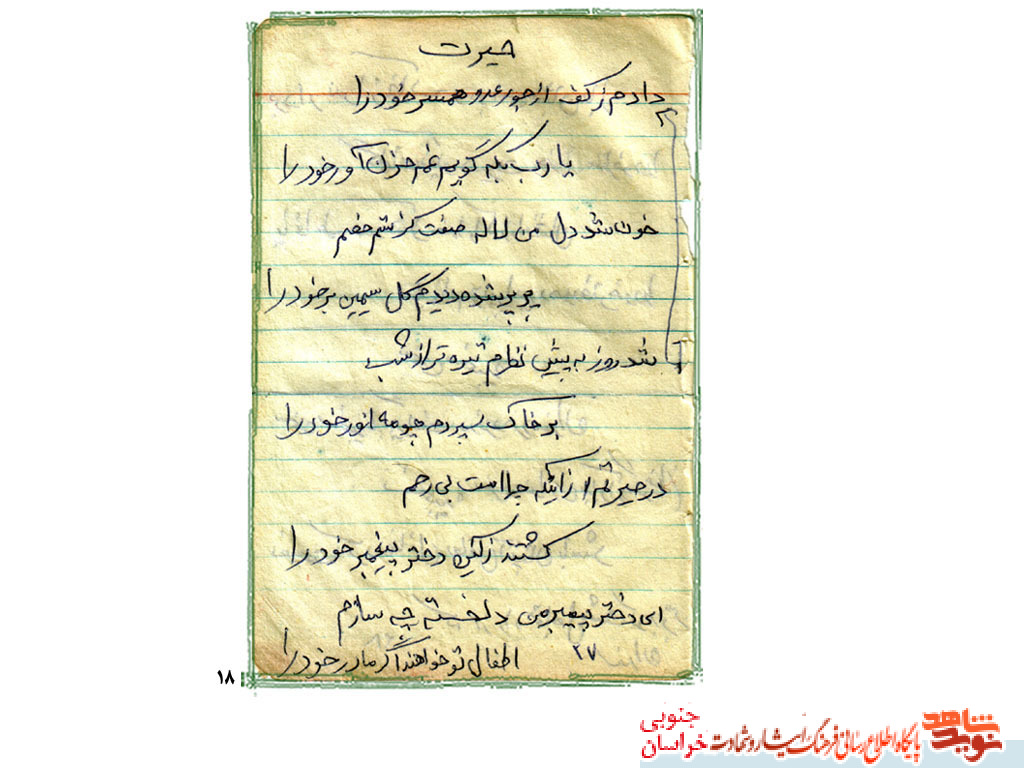 حیرت
دادم ز کف از جور عدو همسر خود را
یا رب بکه گویم غم حزن آور خود را
خون شد دل من لاله صفت کز ستم خصم
پرپر شده دیدم گل سیمین بر خود را
شد روز به پیش نظرم تیره تر از شب
بر خاک سپردم چو مه انور خود را
در حیرتم از اینکه چرا امت بی رحم
کشتند ز کینه دختر پیغمبر خود را
ای دختر پیغمبر من دلخسته چه سازم
اطفال تو خواهند اگر مادر خود را
۲۷
۱۸
نوید شاهد
پایگاه اطلاع رسانی فرهنگ ایثار و شهادت
خراسان جنوبی